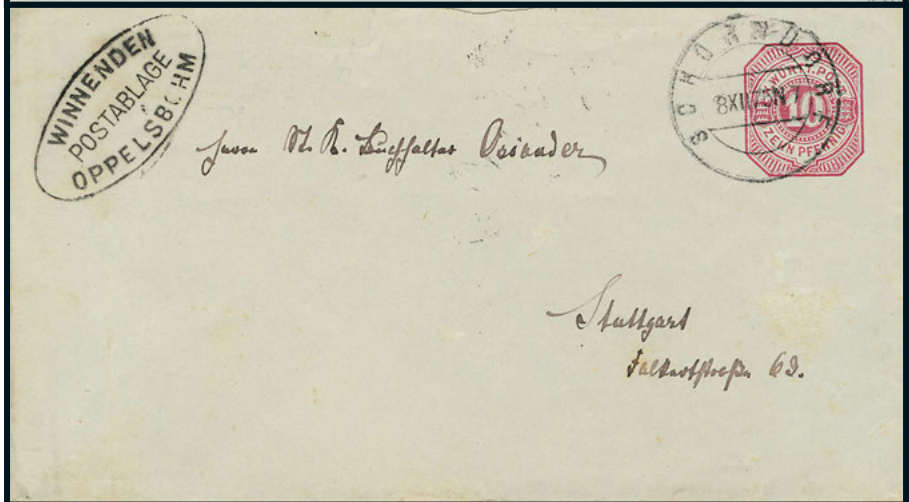 WINNENDEN
POSTABLAGE
OPPELSBOHM
SCHORNDORF
8XII75N7
WÜRTT. POST
10
ZEHN PFENNIG
Herrn St. K. Buchhalter Osiander
Stuttgart
Falkertstraße 63.